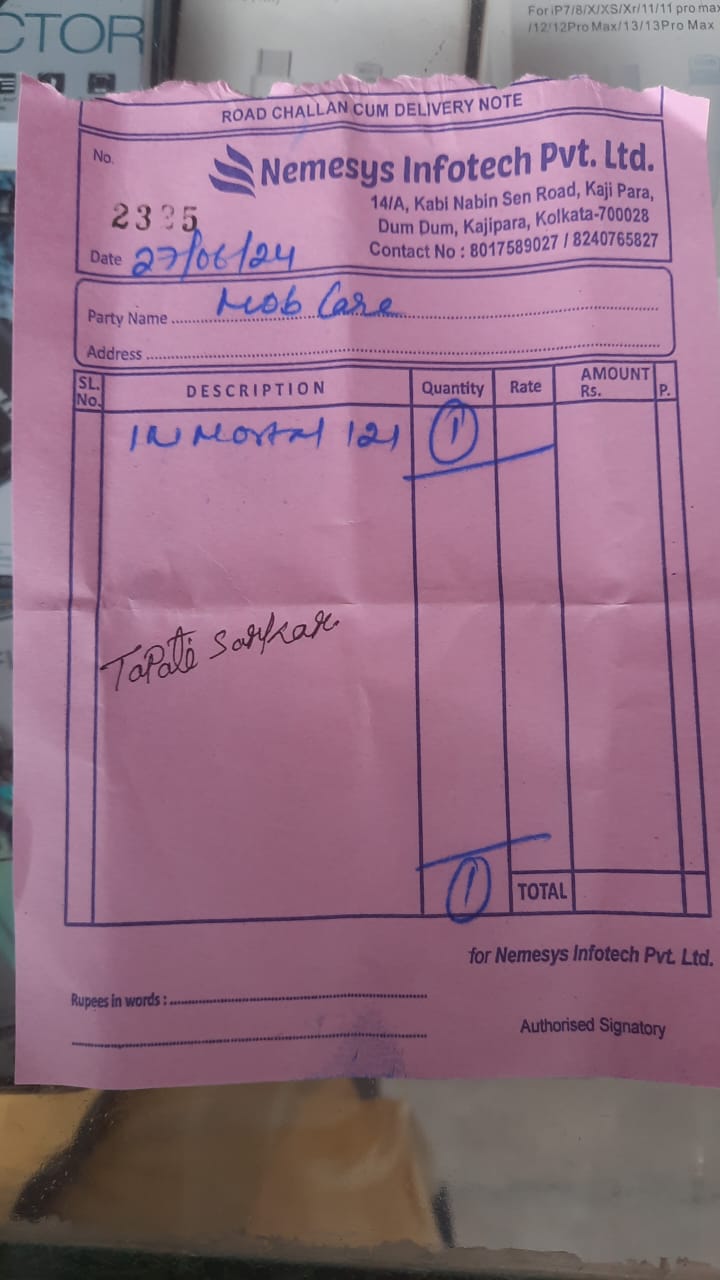 CTOR
For iP7/8/X/XS/Xr/11/11 pro max
/12/12Pro Max/13/13Pro Max
ROAD CHALLAN CUM DELIVERY NOTE
No.
Nemesys Infotech Pvt. Ltd.
14/A, Kabi Nabin Sen Road, Kaji Para,
Dum Dum, Kajipara, Kolkata-700028
Contact No : 8017589027 / 8240765827
Date 27/06/24
Party Name Mob Care
Address
SL. No. DESCRIPTION Quantity Rate AMOUNT Rs. P.
121 1
Tapati Sarkar
1 TOTAL
for Nemesys Infotech Pvt. Ltd.
Rupees in words :
Authorised Signatory